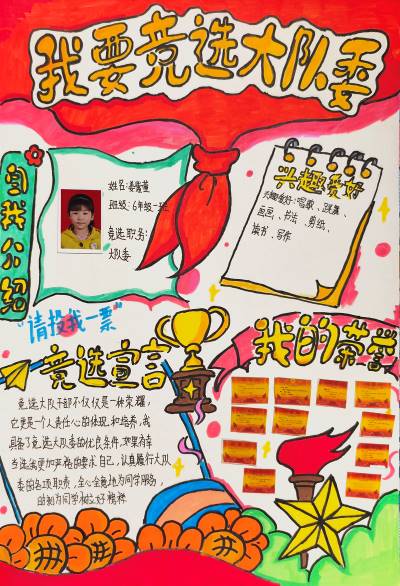 我要竞选大队委
自我介绍
姓名:姜
班级:6年级一班
竞选职务:
大队委
兴趣爱好
兴趣爱好:唱歌、跳舞、
画画、书法、剪纸、
读书、写作
"请投我一票"
竞选宣言
竞选大队干部不仅仅是一种荣耀,
它更是一个责任心的体现和培养,我
具备了竞选大队委的优良条件,如果有幸
当选我更加严格的要求自己,认真履行大队
委的各项职责,全心全意地为同学服务,
时刻为同学树立好榜样
我的荣誉